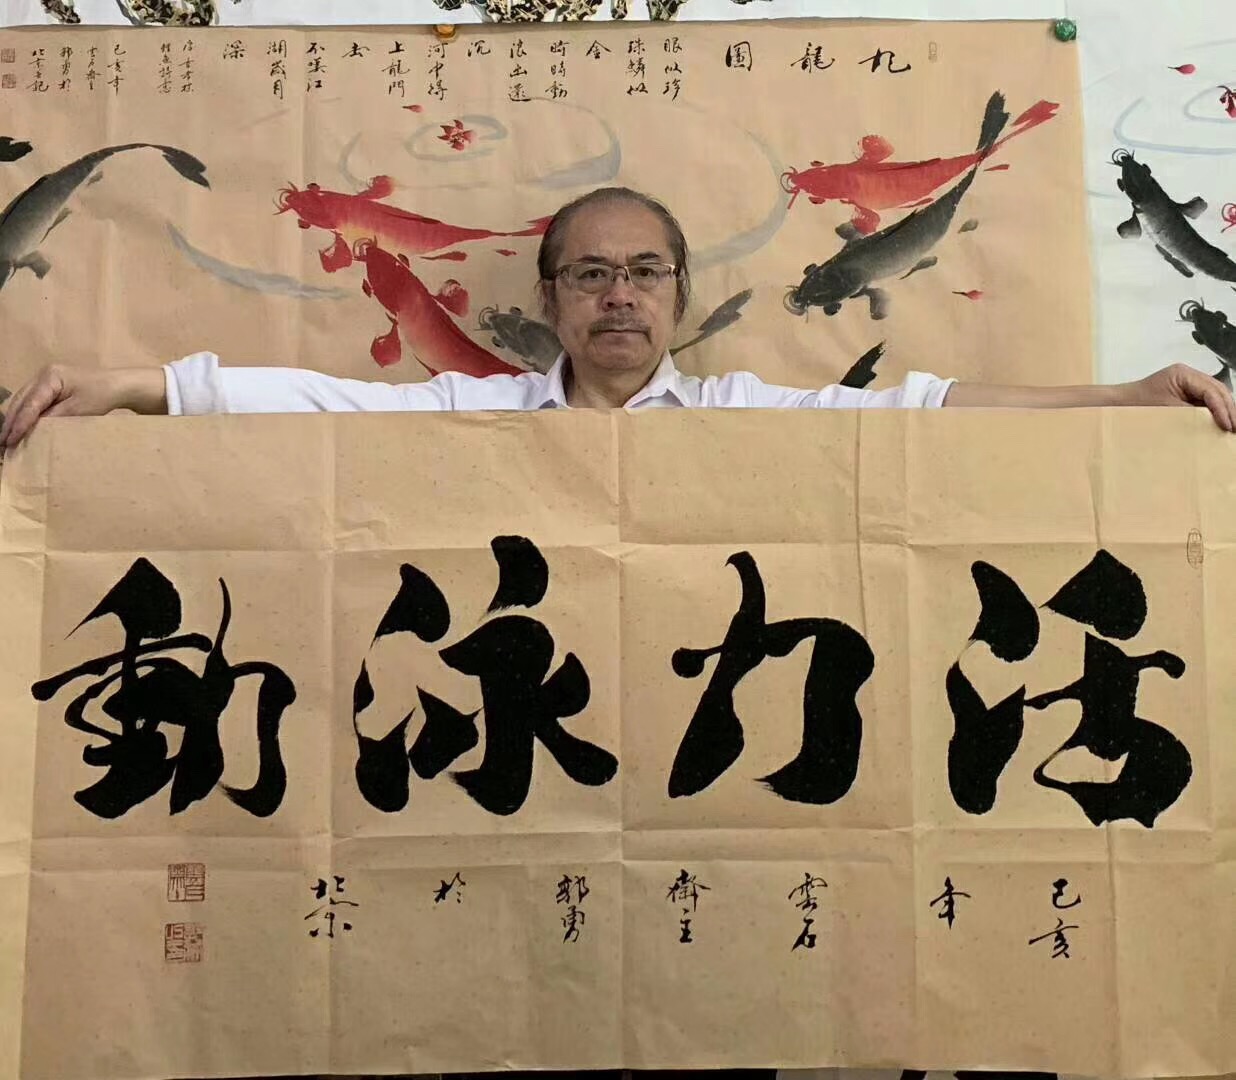 九龍圖
眼似珍
珠鱗似
金
時時動
浪出還
沉
河中得
上龍門
去
不嘆江
湖歲月
深
己亥年
郭勇於
北京
活力泳動
己亥
年
雲石
齋主
郭勇
於
北京